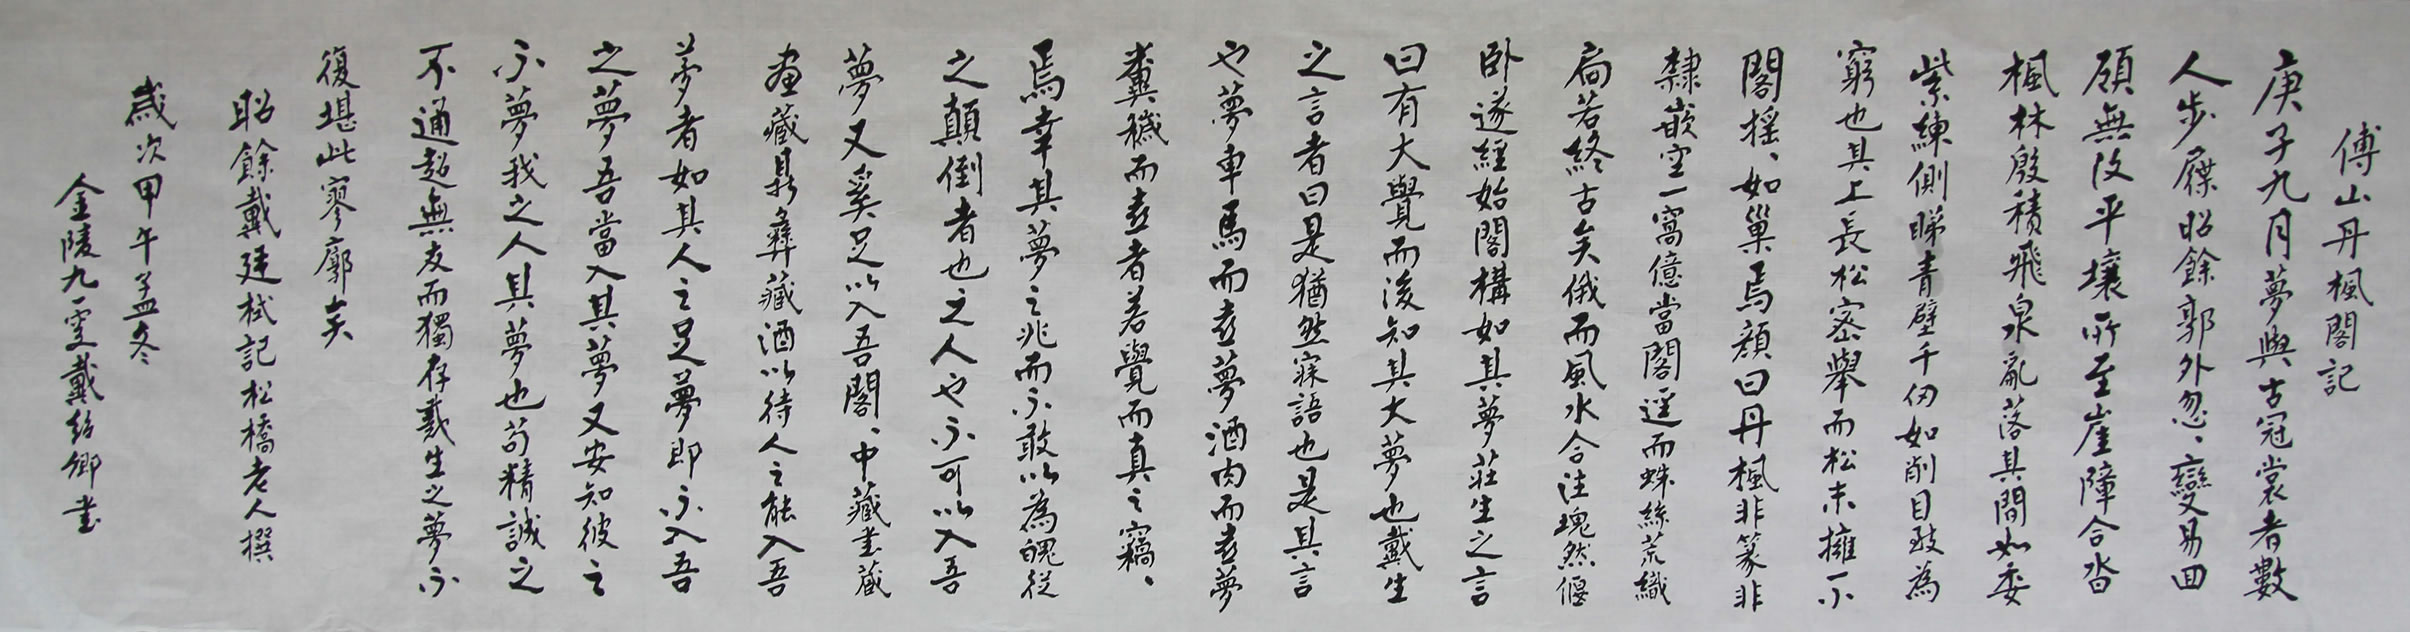 傅山丹楓閣記
庚子九月夢與古冠裳者數
人步屧昭餘郭外忽、變易回
頋無復平壤所至崖障合沓
楓林殷積飛泉亂落其間如委
紫練側睇青壁千仞如削目致為
窮也其上長松密舉而松末擁一
閣摇、如巢焉顔曰丹楓非篆非
隸嵌空一窩億當閣逕而蛛絲荒織
扃若終古矣俄而風水合注塊然偃
卧遂經始閣構如其夢莊生之言
曰有大覺而後知其大夢也戴生
之言者曰是猶然寐語也是其言
也夢車馬而喜夢酒肉而喜夢
糞穢而喜者若覺而真之竊、
焉幸其夢之兆而不敢以為愧從
之顛倒者也之人也不可以入吾
夢又奚足以入吾閣、中藏書藏
畫藏鼎彝藏酒以待人之能入吾
夢者如其人之足夢即不入吾
之夢吾當入其夢又安知彼之
不夢我之人其夢也苟精誠之
不通超無友而獨存戴生之夢不
復堪此寥廓矣
昭餘戴廷栻記松橋老人撰
歲次甲午孟冬
金陵九雯戴紹鄉書